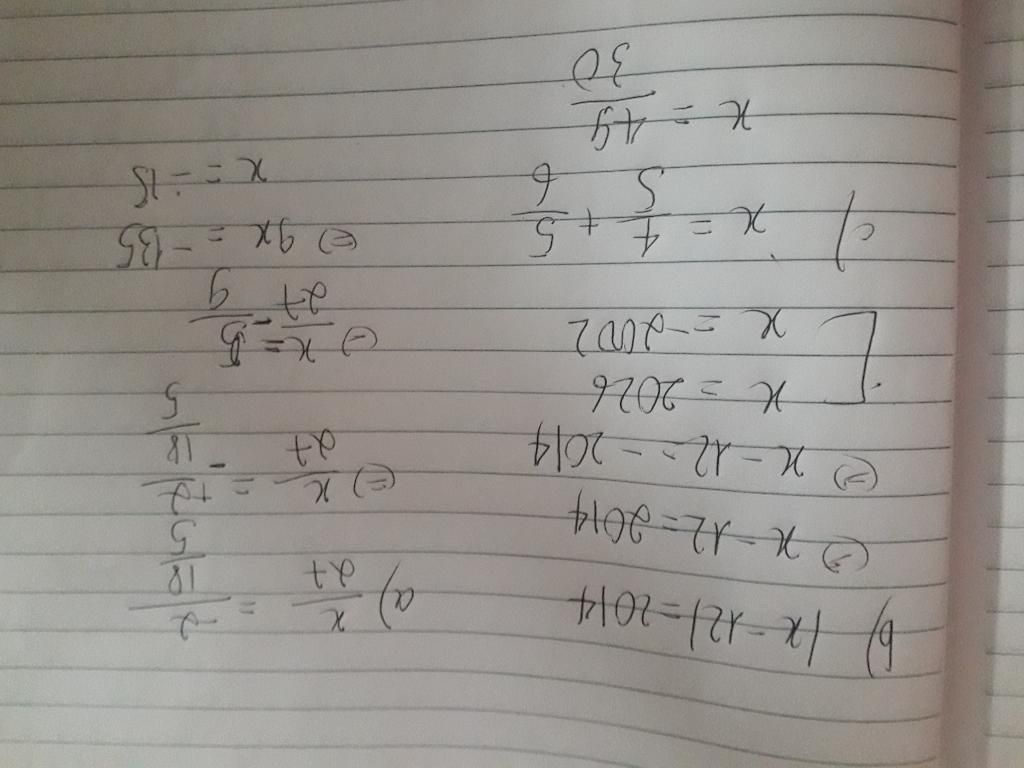 b) |x - 12| = 2014
⇔ x - 12 = 2014
⇔ x - 12 = - 2014
[ x = 2026
x = -2002
c) x = 4/5 + 5/6
x = 49/30
a) x/27 = -2/(18/5)
⇔ x/27 =
⇔ x/27 = -5/9
⇔ 9x = -135
x = -15